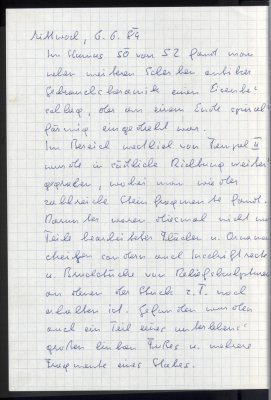 Mittwoch, 6.6.84
Im Humus SO von S2 fand man
neben weiteren Scherben antiker
Gebrauchskeramik einen Eisenbe-
schlag, der an einem Ende spiral-
förmig eingedreht war.
Im Bereich westlich von Tempel II
wurde in südliche Richtung weiter
gegraben, wobei man wieder
zahlreiche Steinfragmente fand.
Darunter waren diesmal nicht nur
Teile bearbeiteter Flächen u. Ornament
sondern auch Inschriftreste
u. Bruchstücke von Reliefskulpturen
an denen der Stuck z.T. noch
erhalten ist. Gefunden wurden
auch ein Teil eines unterlebens-
großen linken Fußes u. mehrere
Fragmente eines Stabes.